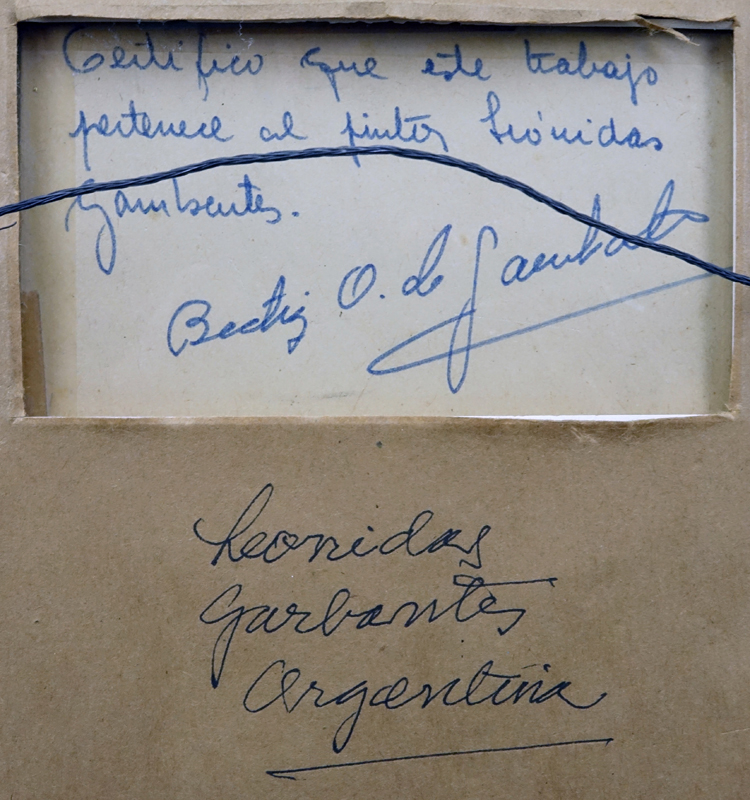 Certifico que este trabajo
pertenece al pintor Leónidas
Gambartes.
Beatriz O. de Gambartes
Leonidas
Garbantes
Argentina